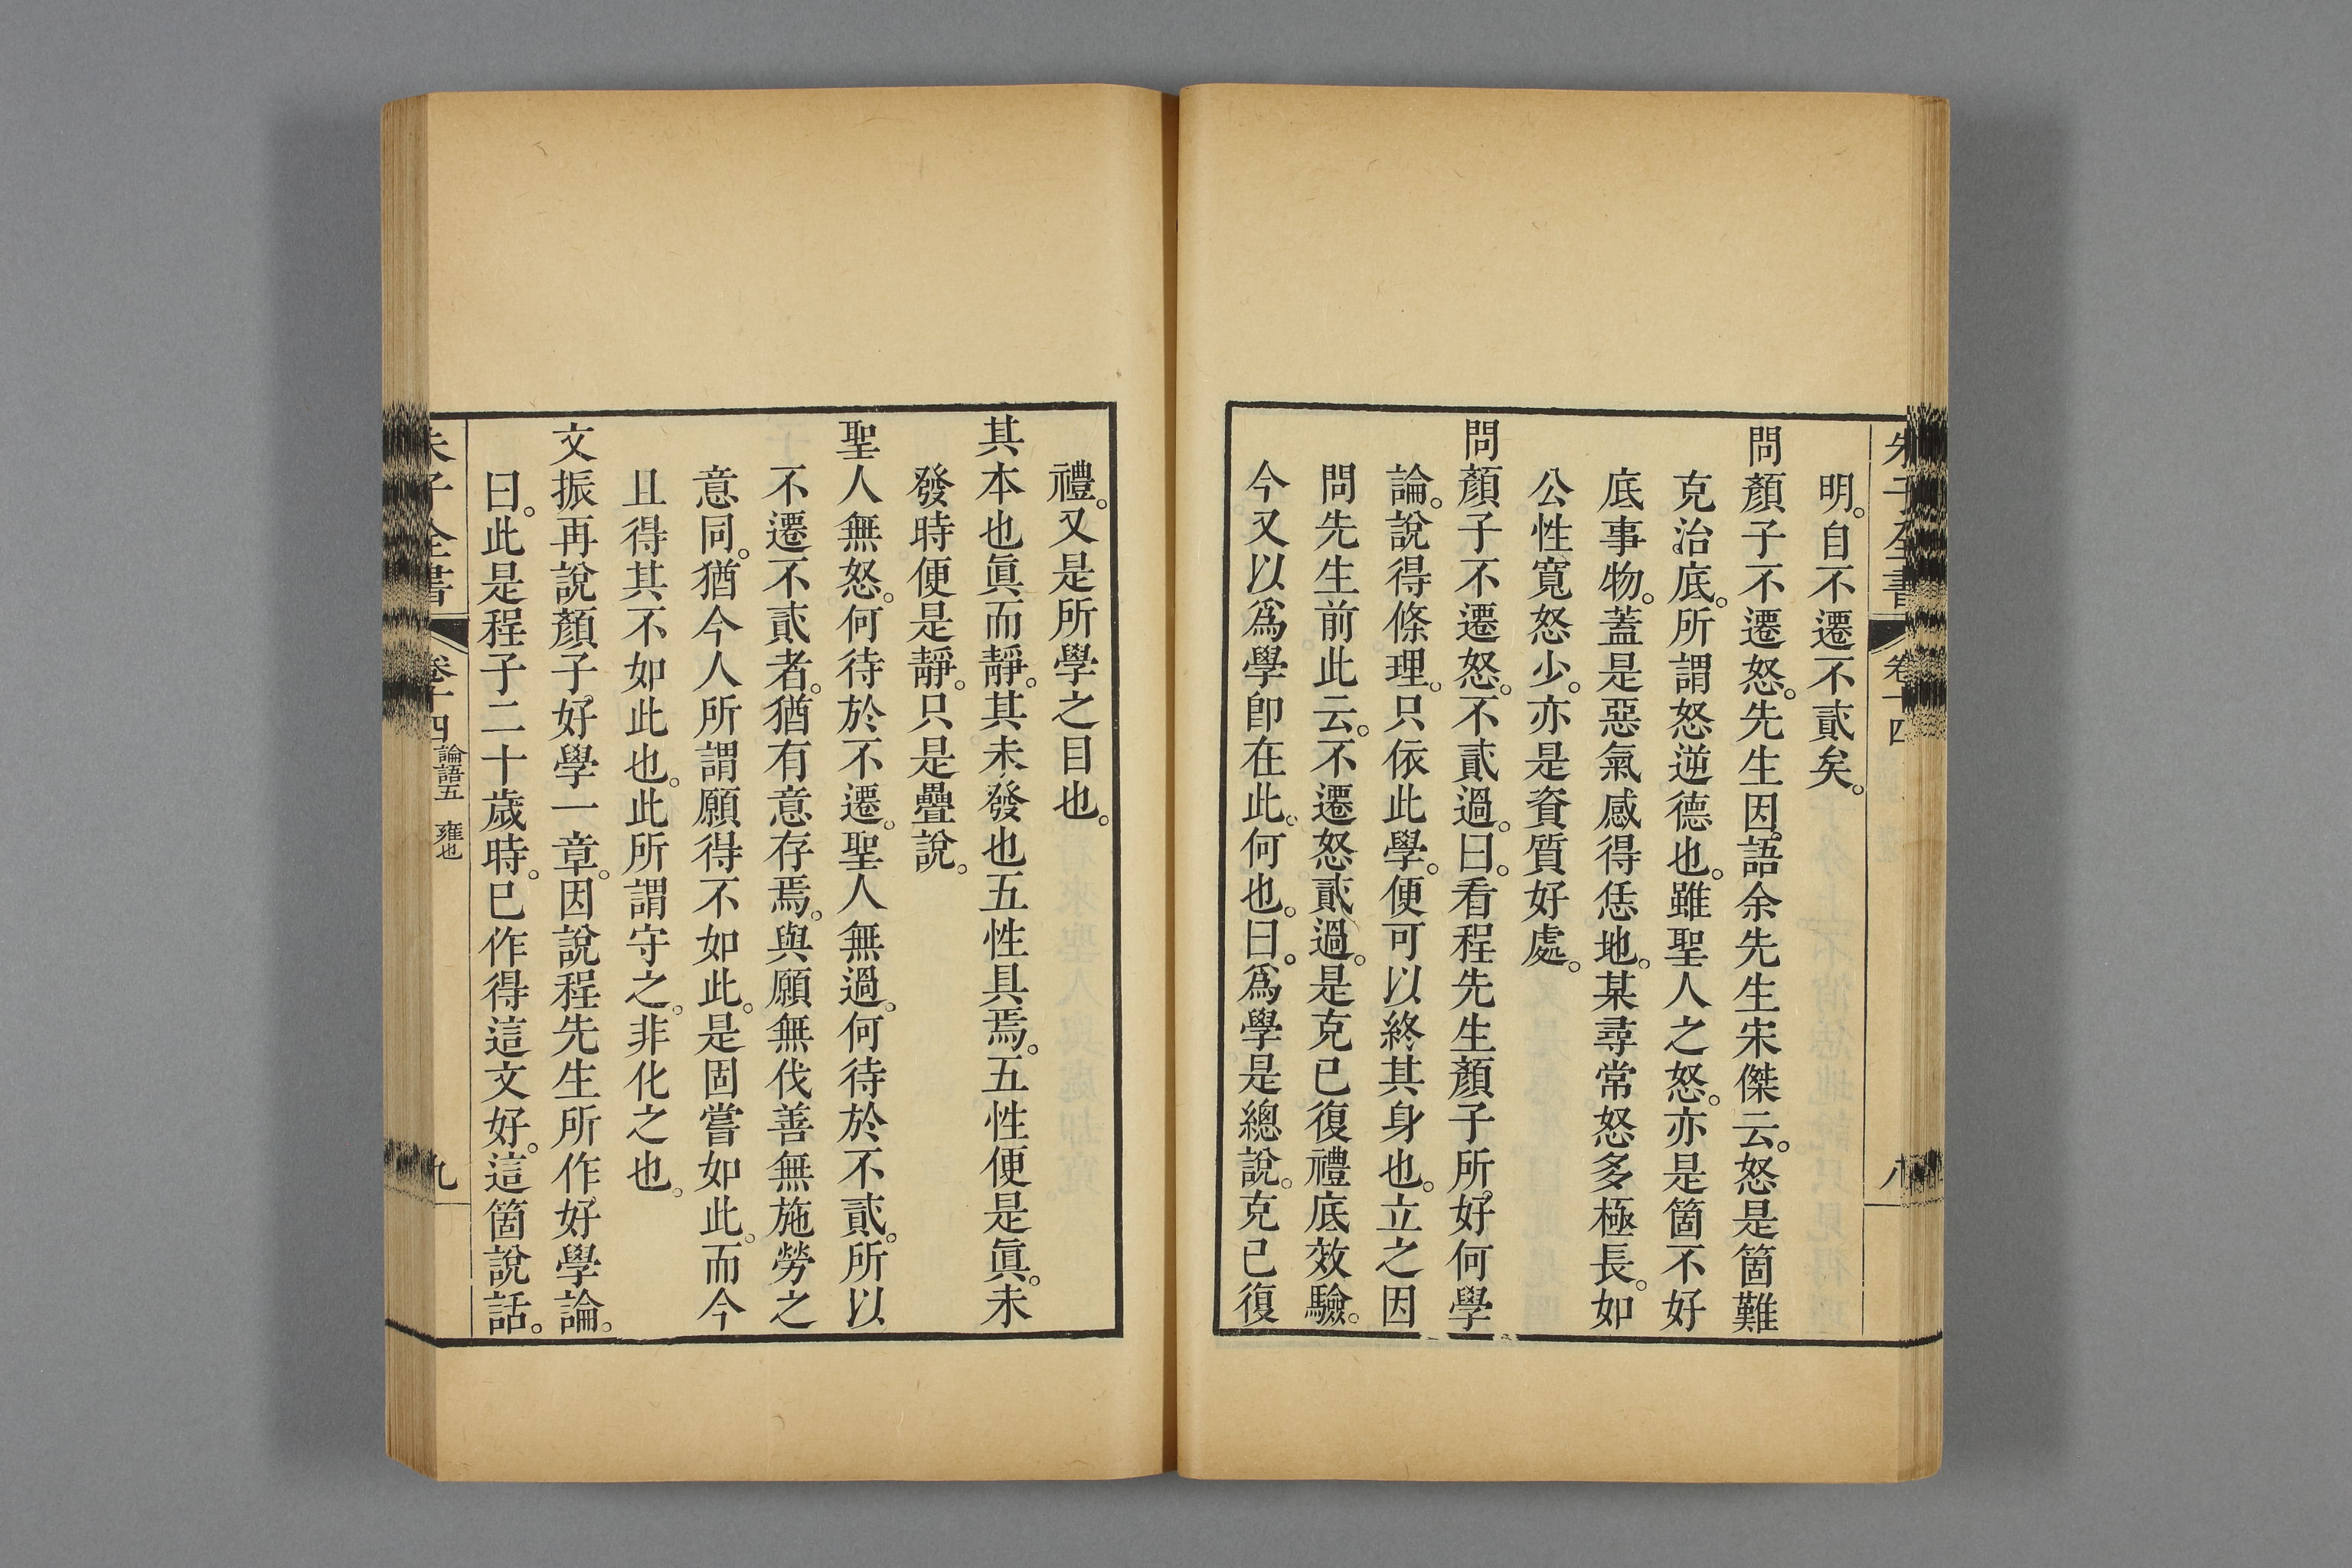 朱子全書 卷十四 八
明。自不遷不貳矣。
問顏子不遷怒。先生因語余先生宋傑云。怒是箇難
克治底。所謂怒逆德也。雖聖人之怒。亦是箇不好
底事物。蓋是惡氣感得恁地。某尋常怒多極長。如
公性寬怒少。亦是資質好處。
問顏子不遷怒。不貳過。曰。看程先生顏子所好何學
論。說得條理。只依此學。便可以終其身也。立之因
問先生前此云。不遷怒貳過。是克己復禮底效驗。
今又以爲學卽在此。何也。曰。爲學是總說。克己復
禮。又是所學之目也。
其本也眞而靜。其未發也五性具焉。五性便是眞。未
發時便是靜。只是疊說。
聖人無怒。何待於不遷。聖人無過。何待於不貳。所以
不遷不貳者。猶有意存焉。與願無伐善無施勞之
意同。猶今人所謂願得不如此。是固嘗如此。而今
且得其不如此也。此所謂守之。非化之也。
文振再說顏子好學一章。因說程先生所作好學論。
曰。此是程子二十歲時。已作得這文好。這箇說話。
朱子全書 卷十四 論語五 雍也 九